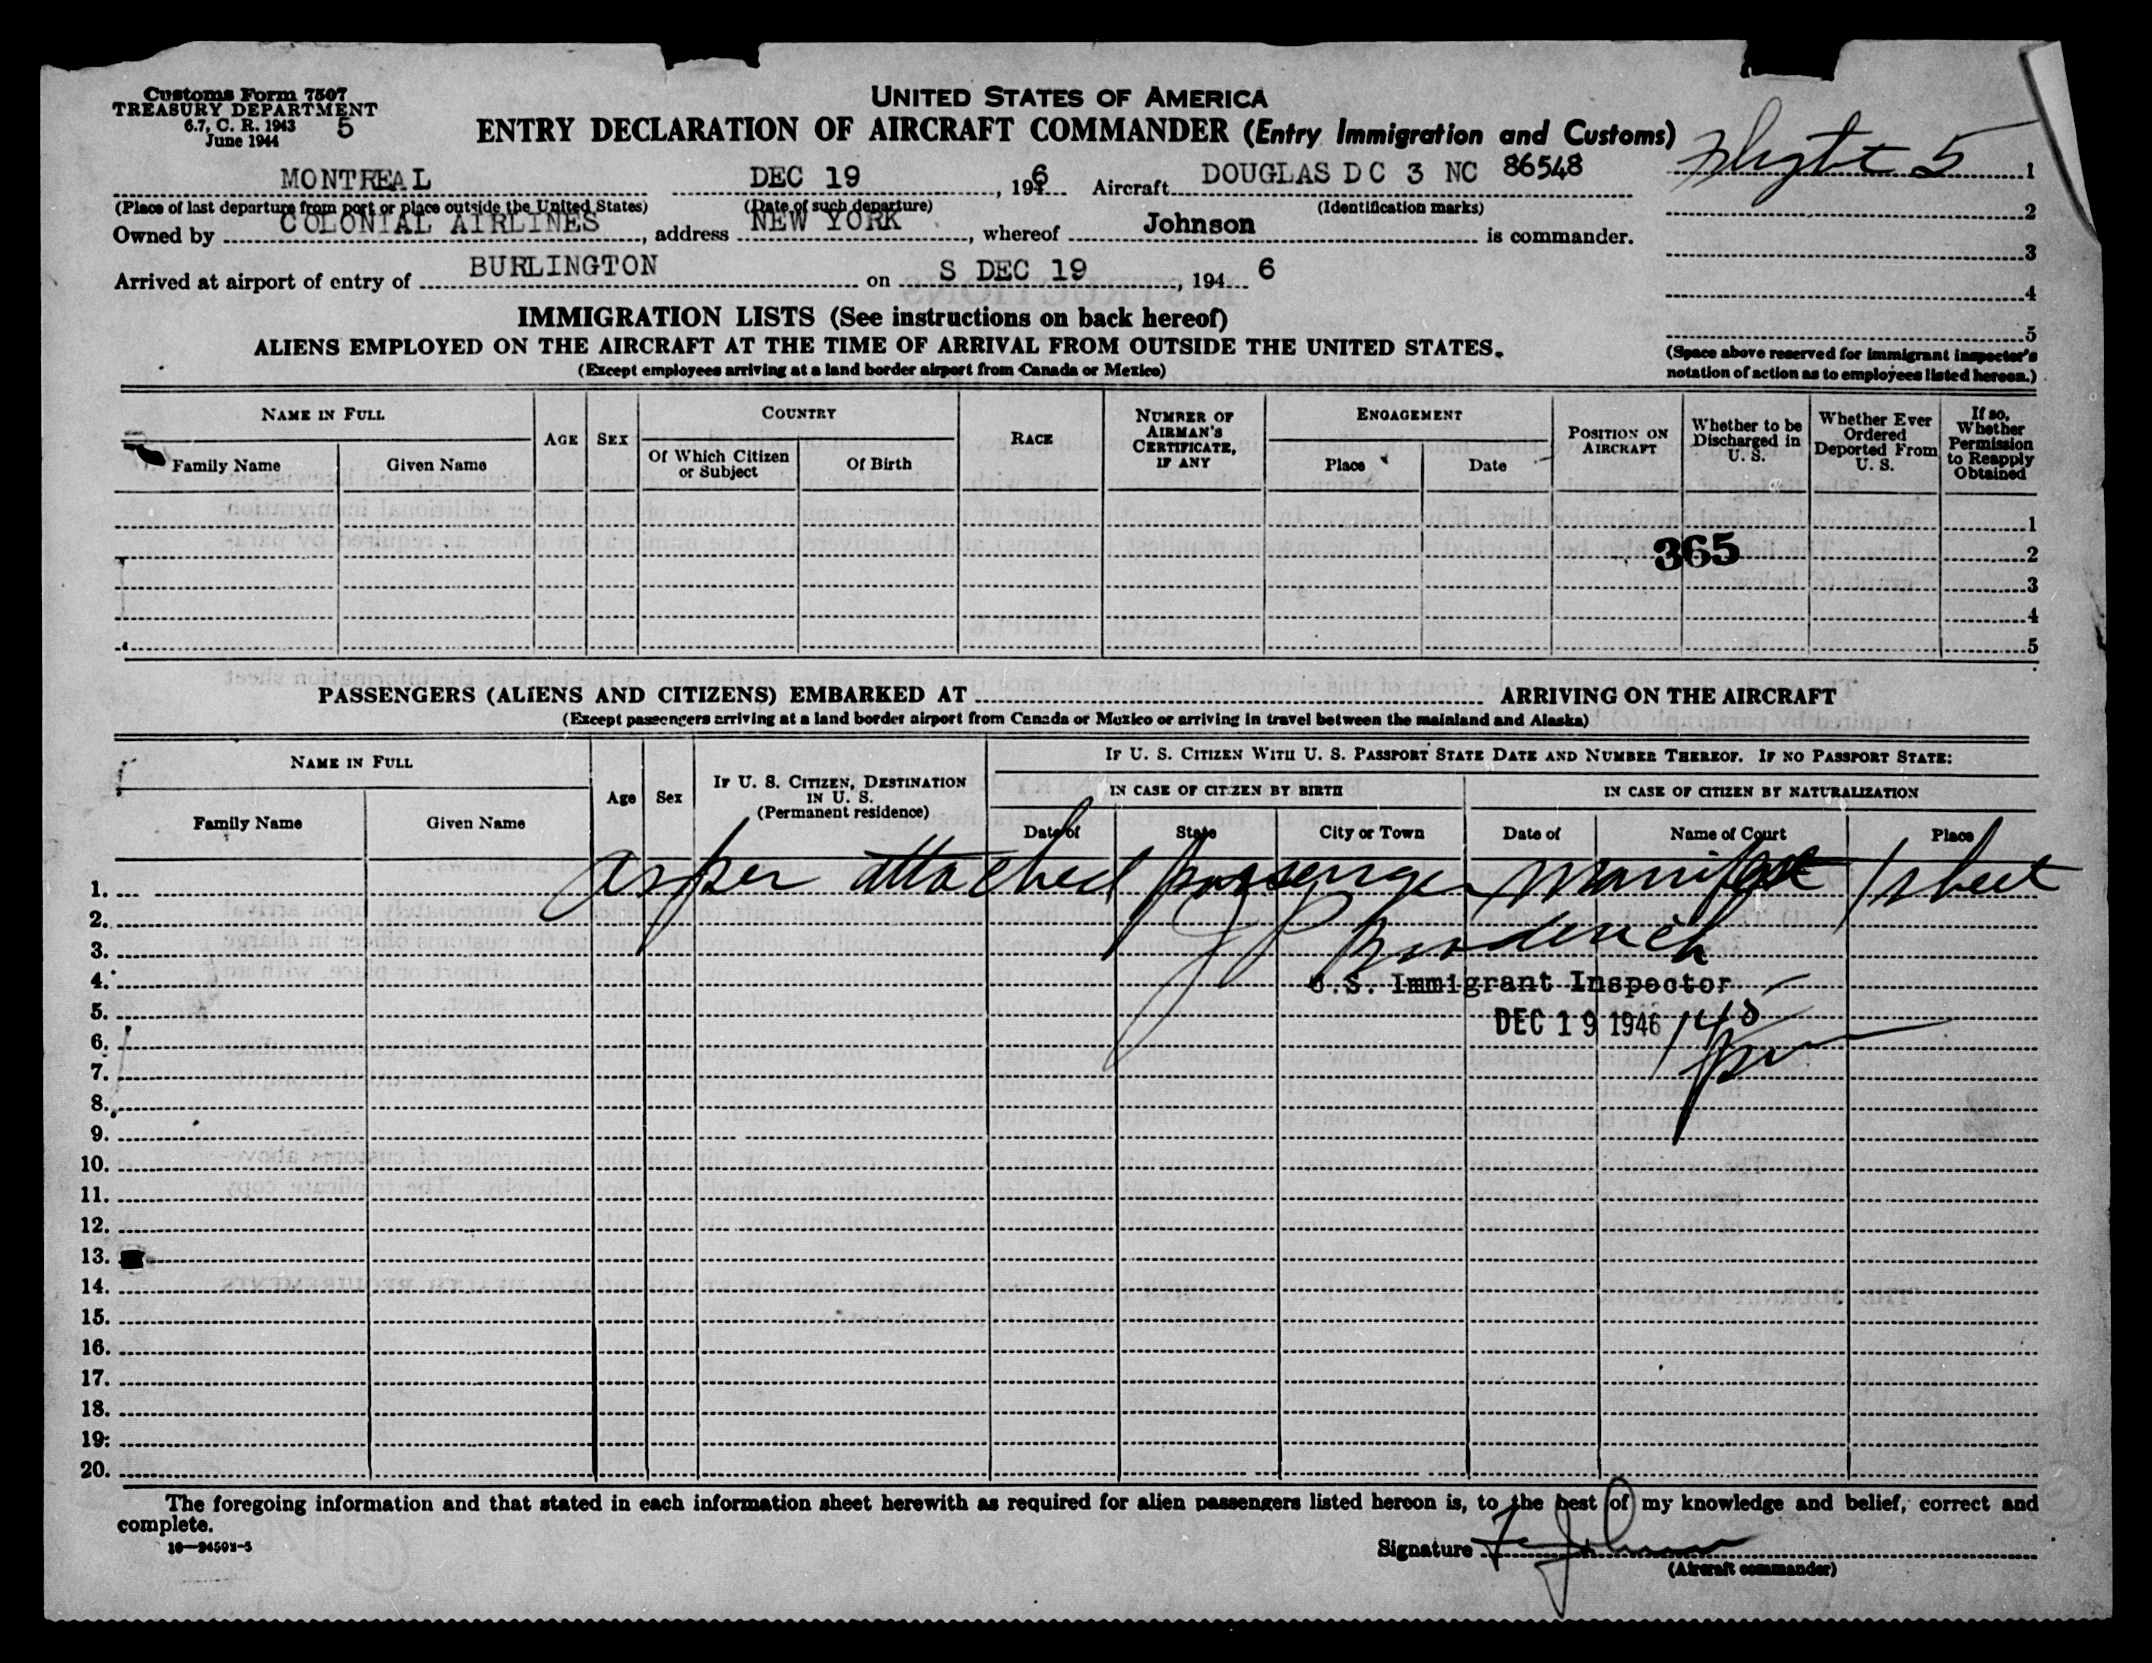 Customs Form 7507
TREASURY DEPARTMENT
6.7, C. R. 1943
June 1944
5
UNITED STATES OF AMERICA
ENTRY DECLARATION OF AIRCRAFT COMMANDER (Entry Immigration and Customs)
Flight 5 1
MONTREAL DEC 19, 1946 Aircraft DOUGLAS DC 3 NC 86548
(Place of last departure from port or place outside the United States) (Date of such departure) (Identification marks) 2
Owned by COLONIAL AIRLINES, address NEW YORK, whereof Johnson is commander.
3
Arrived at airport of entry of BURLINGTON on S DEC 19, 194 6
4
IMMIGRATION LISTS (See instructions on back hereof)
5
ALIENS EMPLOYED ON THE AIRCRAFT AT THE TIME OF ARRIVAL FROM OUTSIDE THE UNITED STATES.
(Except employees arriving at a land border airport from Canada or Mexico)
(Space above reserved for immigrant inspector's
notation of action as to employees listed hereon.)
NAME IN FULL
Family Name Given Name
AGE
SEX
COUNTRY
Of Which Citizen
or Subject
Of Birth
RACE
NUMBER OF
AIRMAN'S
CERTIFICATE,
IF ANY
ENGAGEMENT
Place Date
POSITION ON
AIRCRAFT
Whether to be
Discharged in
U. S.
Whether Ever
Ordered
Deported From
U. S.
If so,
Whether
Permission
to Reapply
Obtained
1
365 2
3
4
5
PASSENGERS (ALIENS AND CITIZENS) EMBARKED AT ARRIVING ON THE AIRCRAFT
(Except passengers arriving at a land border airport from Canada or Mexico or arriving in travel between the mainland and Alaska)
NAME IN FULL
Family Name Given Name
Age
Sex
IF U. S. CITIZEN, DESTINATION
IN U. S.
(Permanent residence)
IF U. S. CITIZEN WITH U. S. PASSPORT STATE DATE AND NUMBER THEREOF. IF NO PASSPORT STATE:
IN CASE OF CITIZEN BY BIRTH
Date of State City or Town
IN CASE OF CITIZEN BY NATURALIZATION
Date of Name of Court Place
1. As per attached passenger manifest 1 sheet
2.
3.
4. U.S. Immigrant Inspector
5. DEC 19 1946
6.
7.
8.
9.
10.
11.
12.
13.
14.
15.
16.
17.
18.
19.
20.
The foregoing information and that stated in each information sheet herewith as required for alien passengers listed hereon is, to the best of my knowledge and belief, correct and
complete.
Signature Johnson
(Aircraft commander)